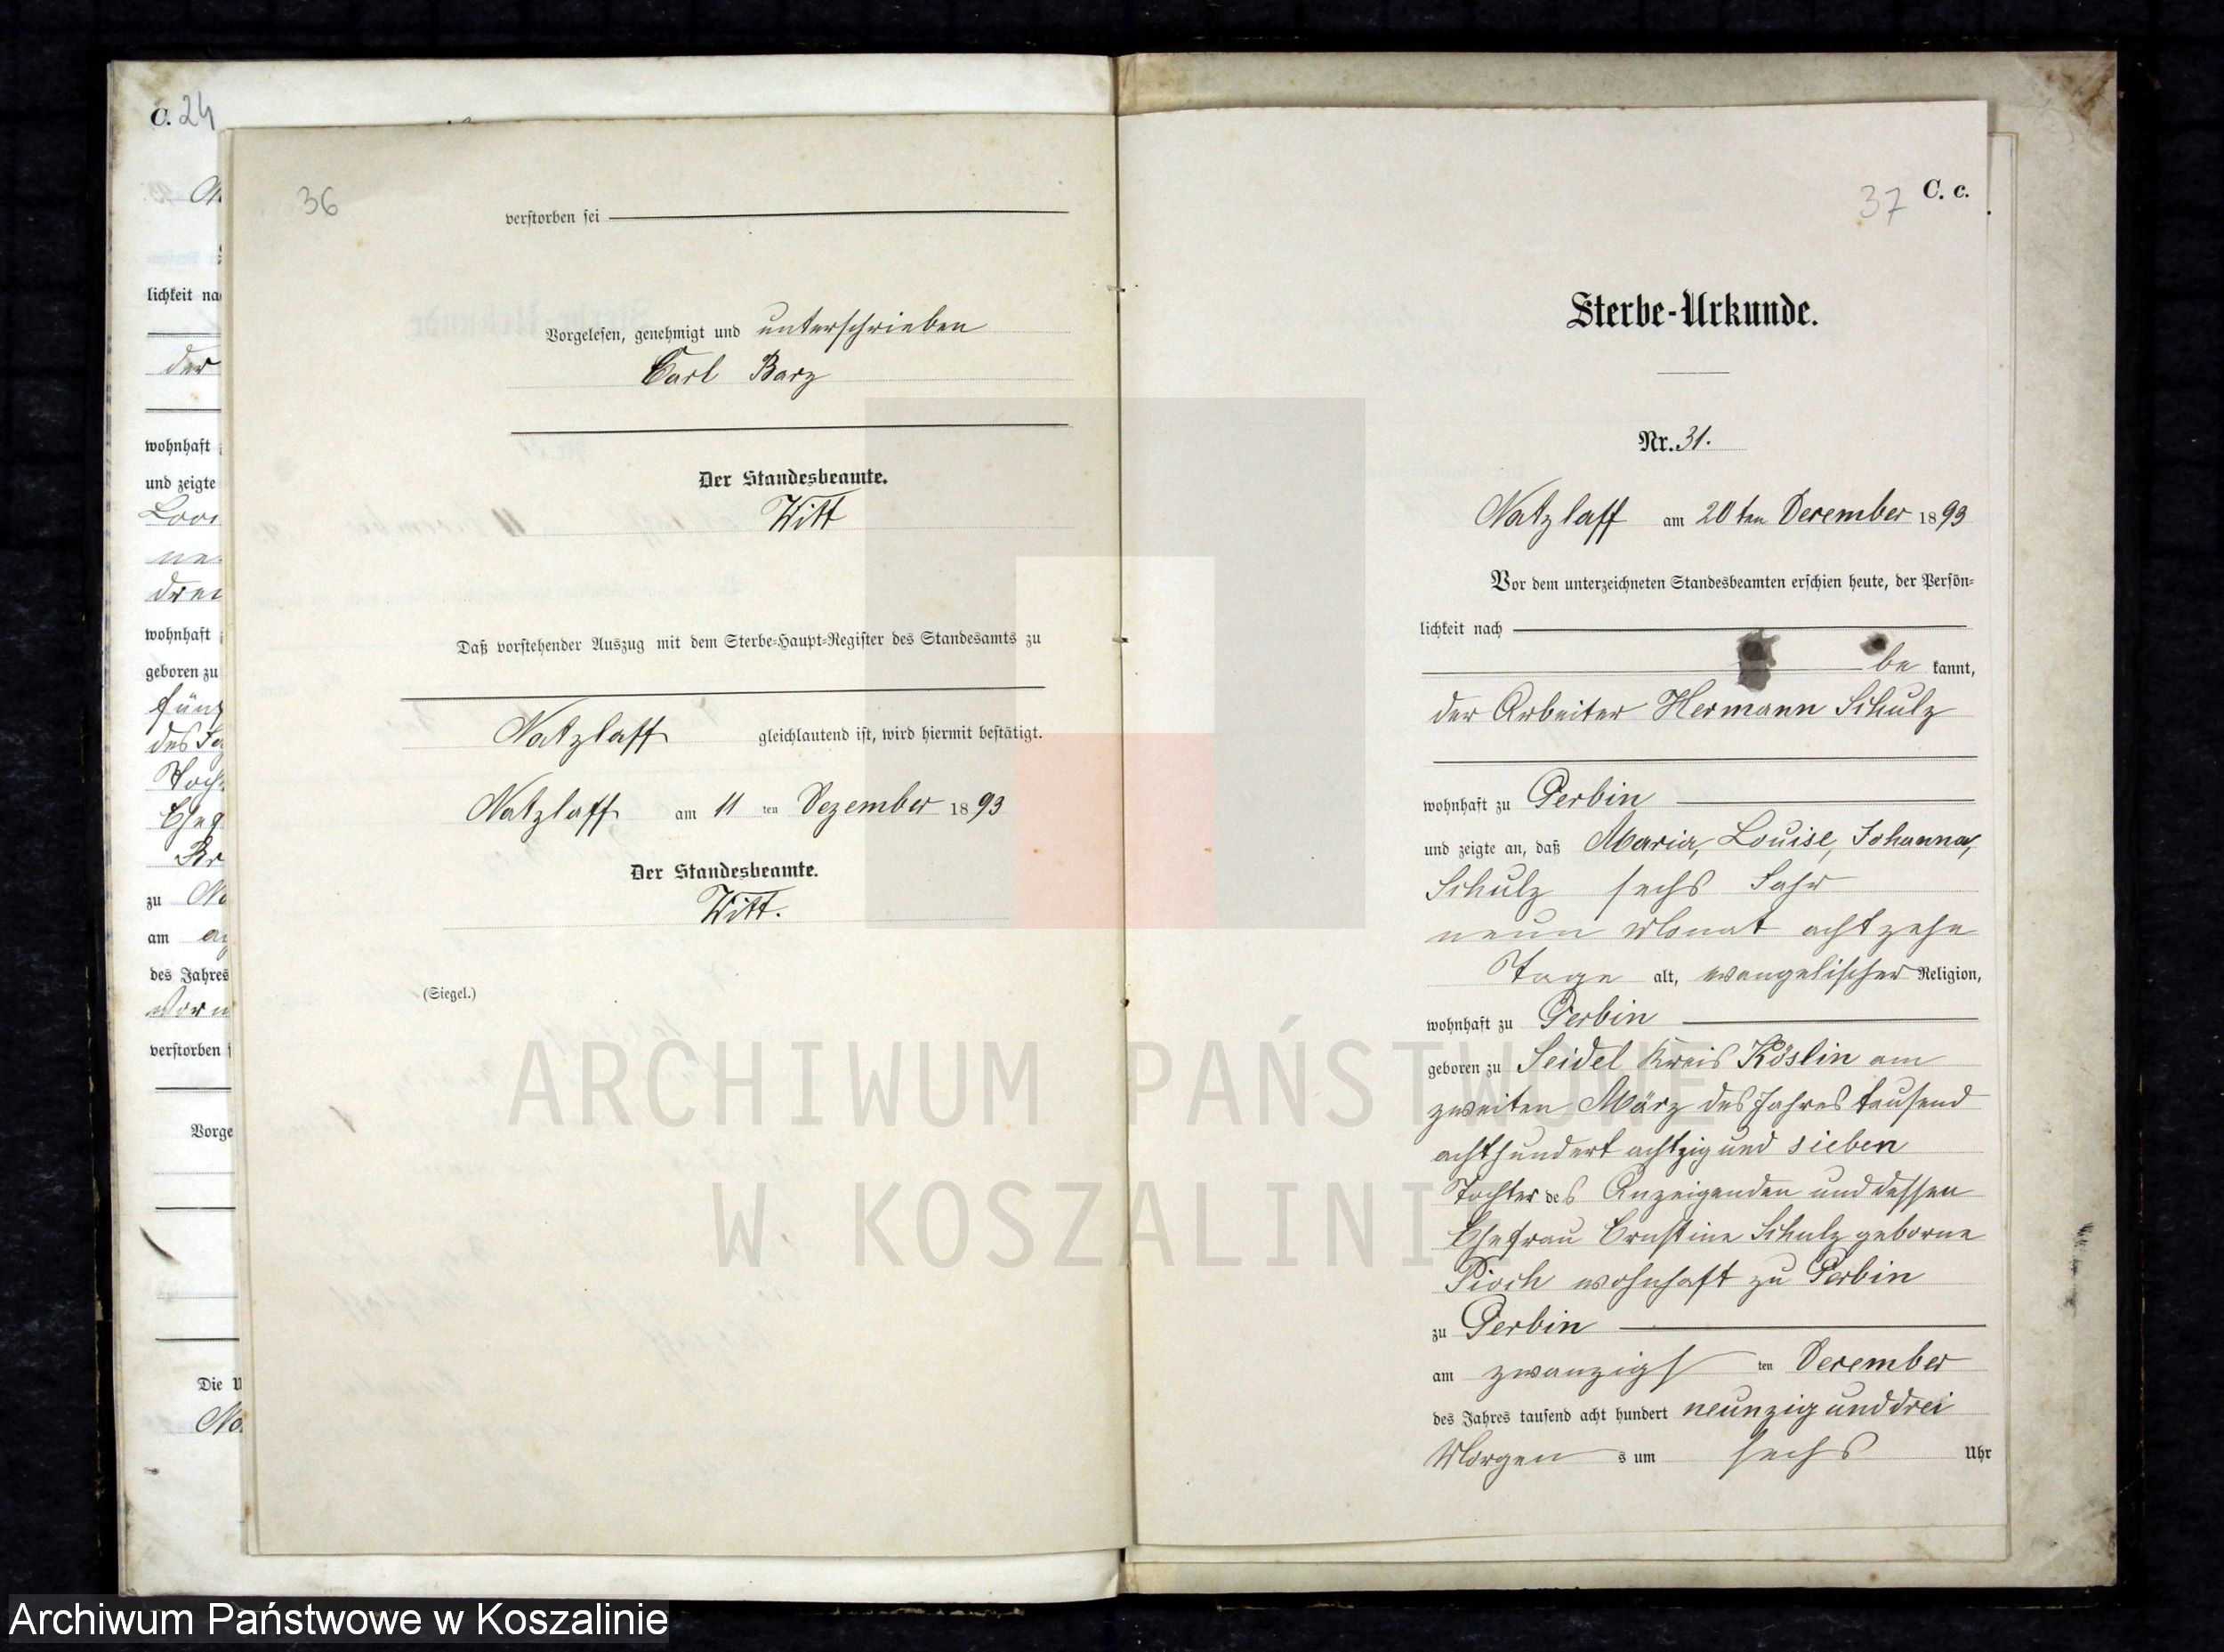 C. 24
N
lichkeit na
der
wohnhaft
und zeigte
drei
wohnhaft
geboren zu
fünf
des Ja
Toch
Ehef
zu Na
am
des Jahres
Vorm
verstorben s
Vorge
Die U
Na
36
verstorben sei
Vorgelesen, genehmigt und unterschrieben
Carl Barz
Der Standesbeamte.
Witt
Daß vorstehender Auszug mit dem Sterbe-Haupt-Register des Standesamts zu
Natzlaff gleichlautend ist, wird hiermit bestätigt.
Natzlaff am 11 ten Dezember 1893
Der Standesbeamte.
Witt.
(Siegel.)
37 C. c.
Sterbe-Urkunde.
Nr. 31.
Natzlaff am 20 ten December 1893
Vor dem unterzeichneten Standesbeamten erschien heute, der Persön-
lichkeit nach
be kannt,
der Arbeiter Hermann Schulz
wohnhaft zu Perbin
und zeigte an, daß Maria, Louise, Johanna,
Schulz sechs Jahr
neun Monat achtzehn
Tage alt, evangelischer Religion,
wohnhaft zu Perbin
geboren zu Seidel Kreis Köslin am
zweiten März des Jahres tausend
achthundert achtzig und sieben
Tochter des Anzeigenden und dessen
Ehefrau Ernstine Schulz geborne
Pioch wohnhaft zu Perbin
zu Perbin
am zwanzigs ten December
des Jahres tausend acht hundert neunzig und drei
Morgen s um sechs Uhr
ARCHIWUM PAŃSTWOWE
W KOSZALINIE
Archiwum Państwowe w Koszalinie